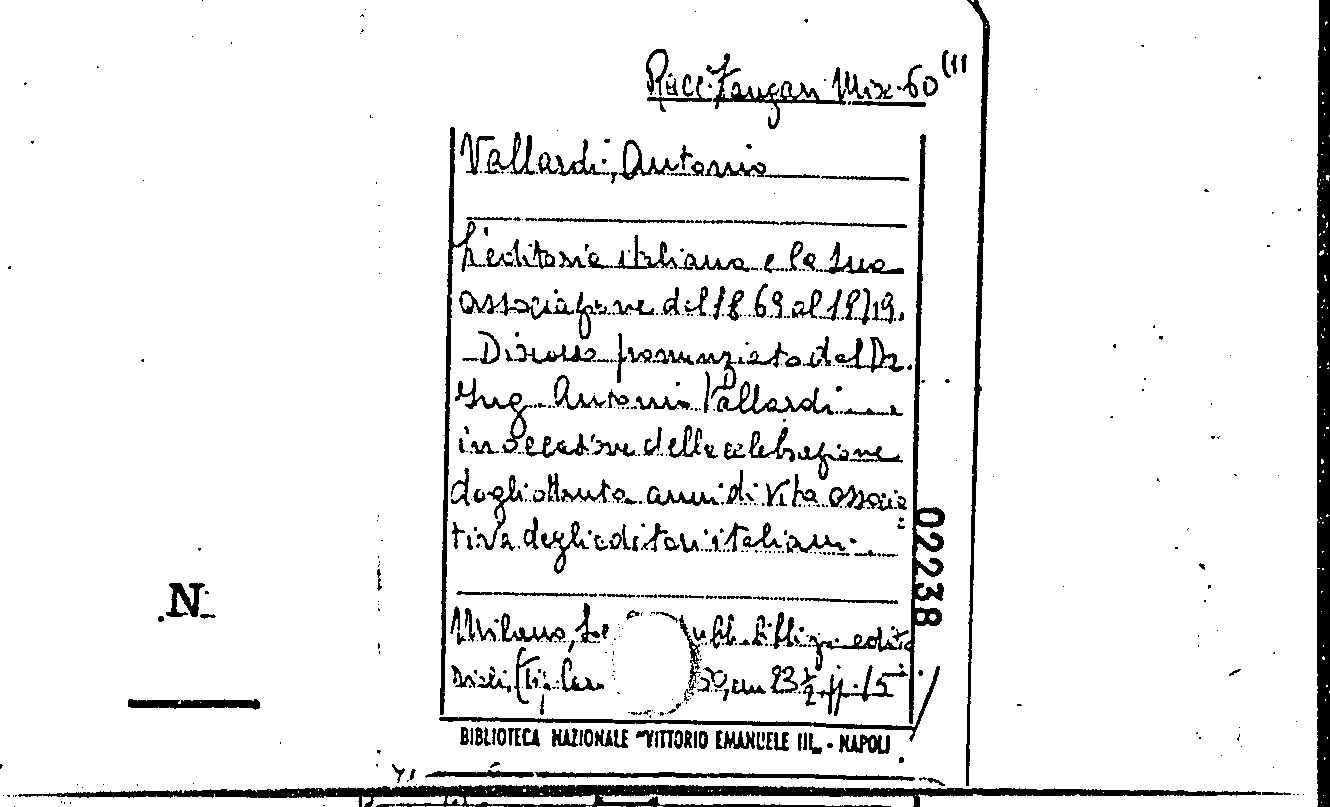 Racc. Zangari Misc. 60 (11
Vallardi, Antonio
L'editoria italiana e la sua
associazione dal 1869 al 1949.
Discorso pronunziato dal Dr.
Ing. Antonio Vallardi
in occasione della celebrazione
degli ottanta anni di vita associa=
tiva degli editori italiani.
02238
Milano, ubb. bibliogr. edito
riali, (Tip. cm 23 ½ pp. 15
N
BIBLIOTECA NAZIONALE "VITTORIO EMANUELE III„ - NAPOLI